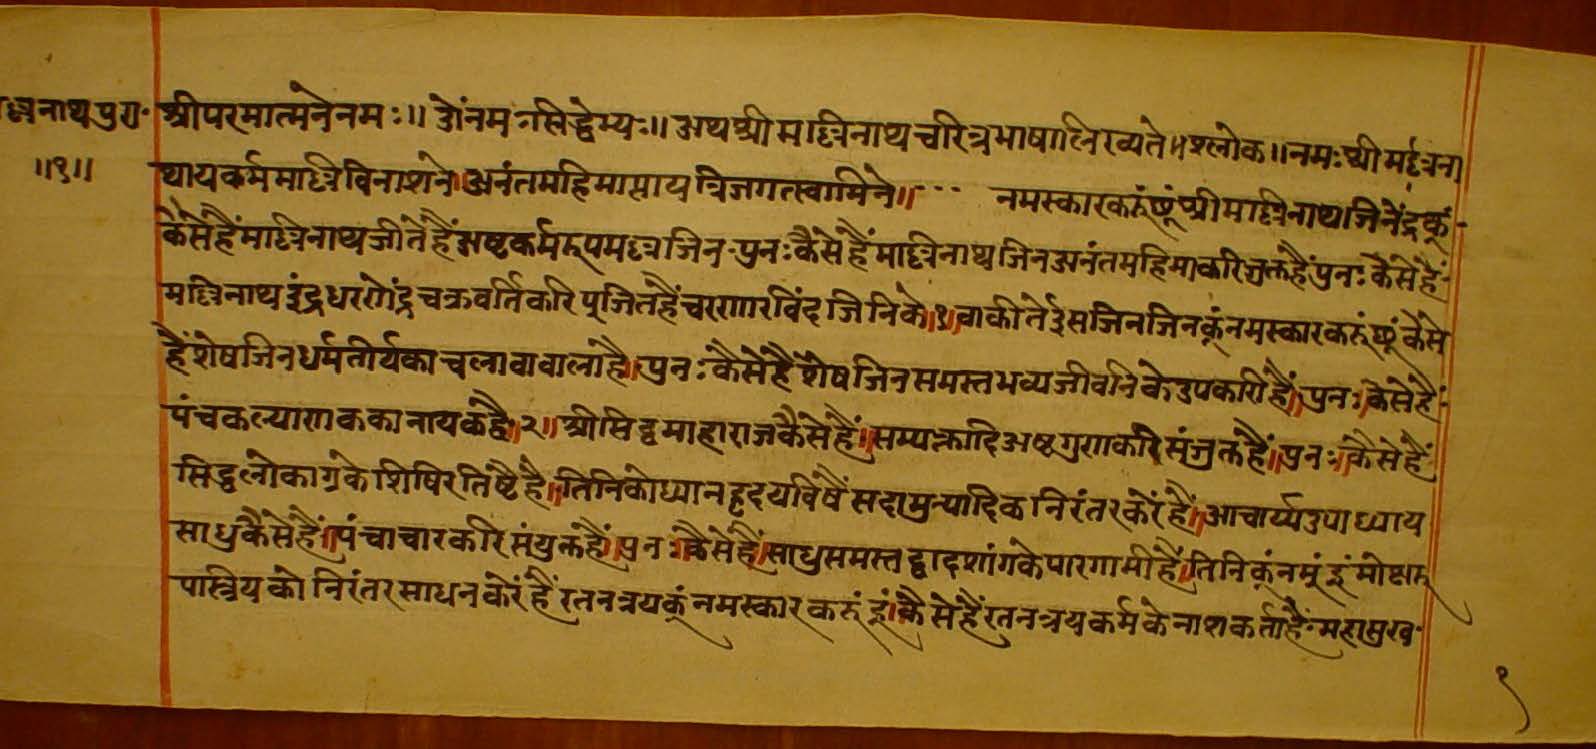 ल्लिनाथपुरा॰
॥१॥
श्रीपरमात्मनेनमः॥ ॐनमःसिद्धेभ्यः॥ अथश्रीमल्लिनाथचरित्रभाषालिख्यते॥ श्लोक॥ नमःश्रीमल्लिना
थायकर्ममल्लिविनाशने॥ अनंतमहिमाप्तायत्रिजगत्स्वामिने॥ --- नमस्कारकरूंछूंश्रीमल्लिनाथजिनेंद्रकूं-
कैसेहैंमल्लिनाथजीतेहैंअष्टकर्मरूपमल्लजिन-पुनःकैसेहैंमल्लिनाथजिनअनंतमहिमाकरिजुक्तहैंपुनःकैसेहैं-
मल्लिनाथइंद्रधरणेंद्रचक्रवर्तिकरिपूजितहैंचरणारविंदजिनिके॥१॥वाकीतेईसजिनजिनकूंनमस्कारकरूंछूंकैसे
हैंशेषजिनधर्मतीर्थकाचलावावालाहै॥पुनःकैसेहैंशेषजिनसमस्तभव्यजीवनिकेउपकारीहैं॥पुनःकैसेहैं-
पंचकल्याणककानायकहै॥२॥श्रीसिद्धमाहाराजकैसेहैं॥सम्यक्तादिअष्टगुणकरिसंजुक्तहैं॥पुनः॥कैसेहैं
सिद्धलोकाग्रकेशिषिरतिष्टैहै॥तिनिकोध्यानहृदयविषैंसदामुन्यादिकनिरंतरकरेंहैं॥आचार्य्यउपाध्याय
साधुकैसेहैं॥पंचाचारकरिसंयुक्तहैं॥पुनःकैसेहैं॥साधुसमस्तद्वादशांगकेपारगामीहैं॥तिनिकूंनमूंहूंमोक्षरू
पास्त्रियकोनिरंतरसाधनकरेंहैंरतनत्रयकूंनमस्कारकरूंहूं॥कैसेहैंरतनत्रयकर्मकेनाशकर्ताहैं-महासुख-
१